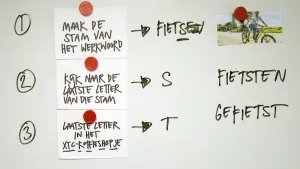 1
MAAK DE
STAM VAN
HET WERKWOORD
→ FIETSEN
2
KIJK NAAR DE
LAATSTE LETTER
VAN DIE STAM
→ S
FIETSTEN
3
LAATSTE LETTER
IN HET
XTC-KOFFIESHOPJE
→ T
GEFIETST